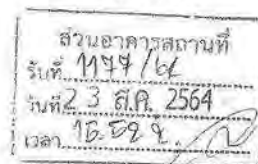 ส่วนอาคารสถานที่
รับที่ 1177/64
วันที่ 23 ส.ค. 2564
เวลา 15.59 น.